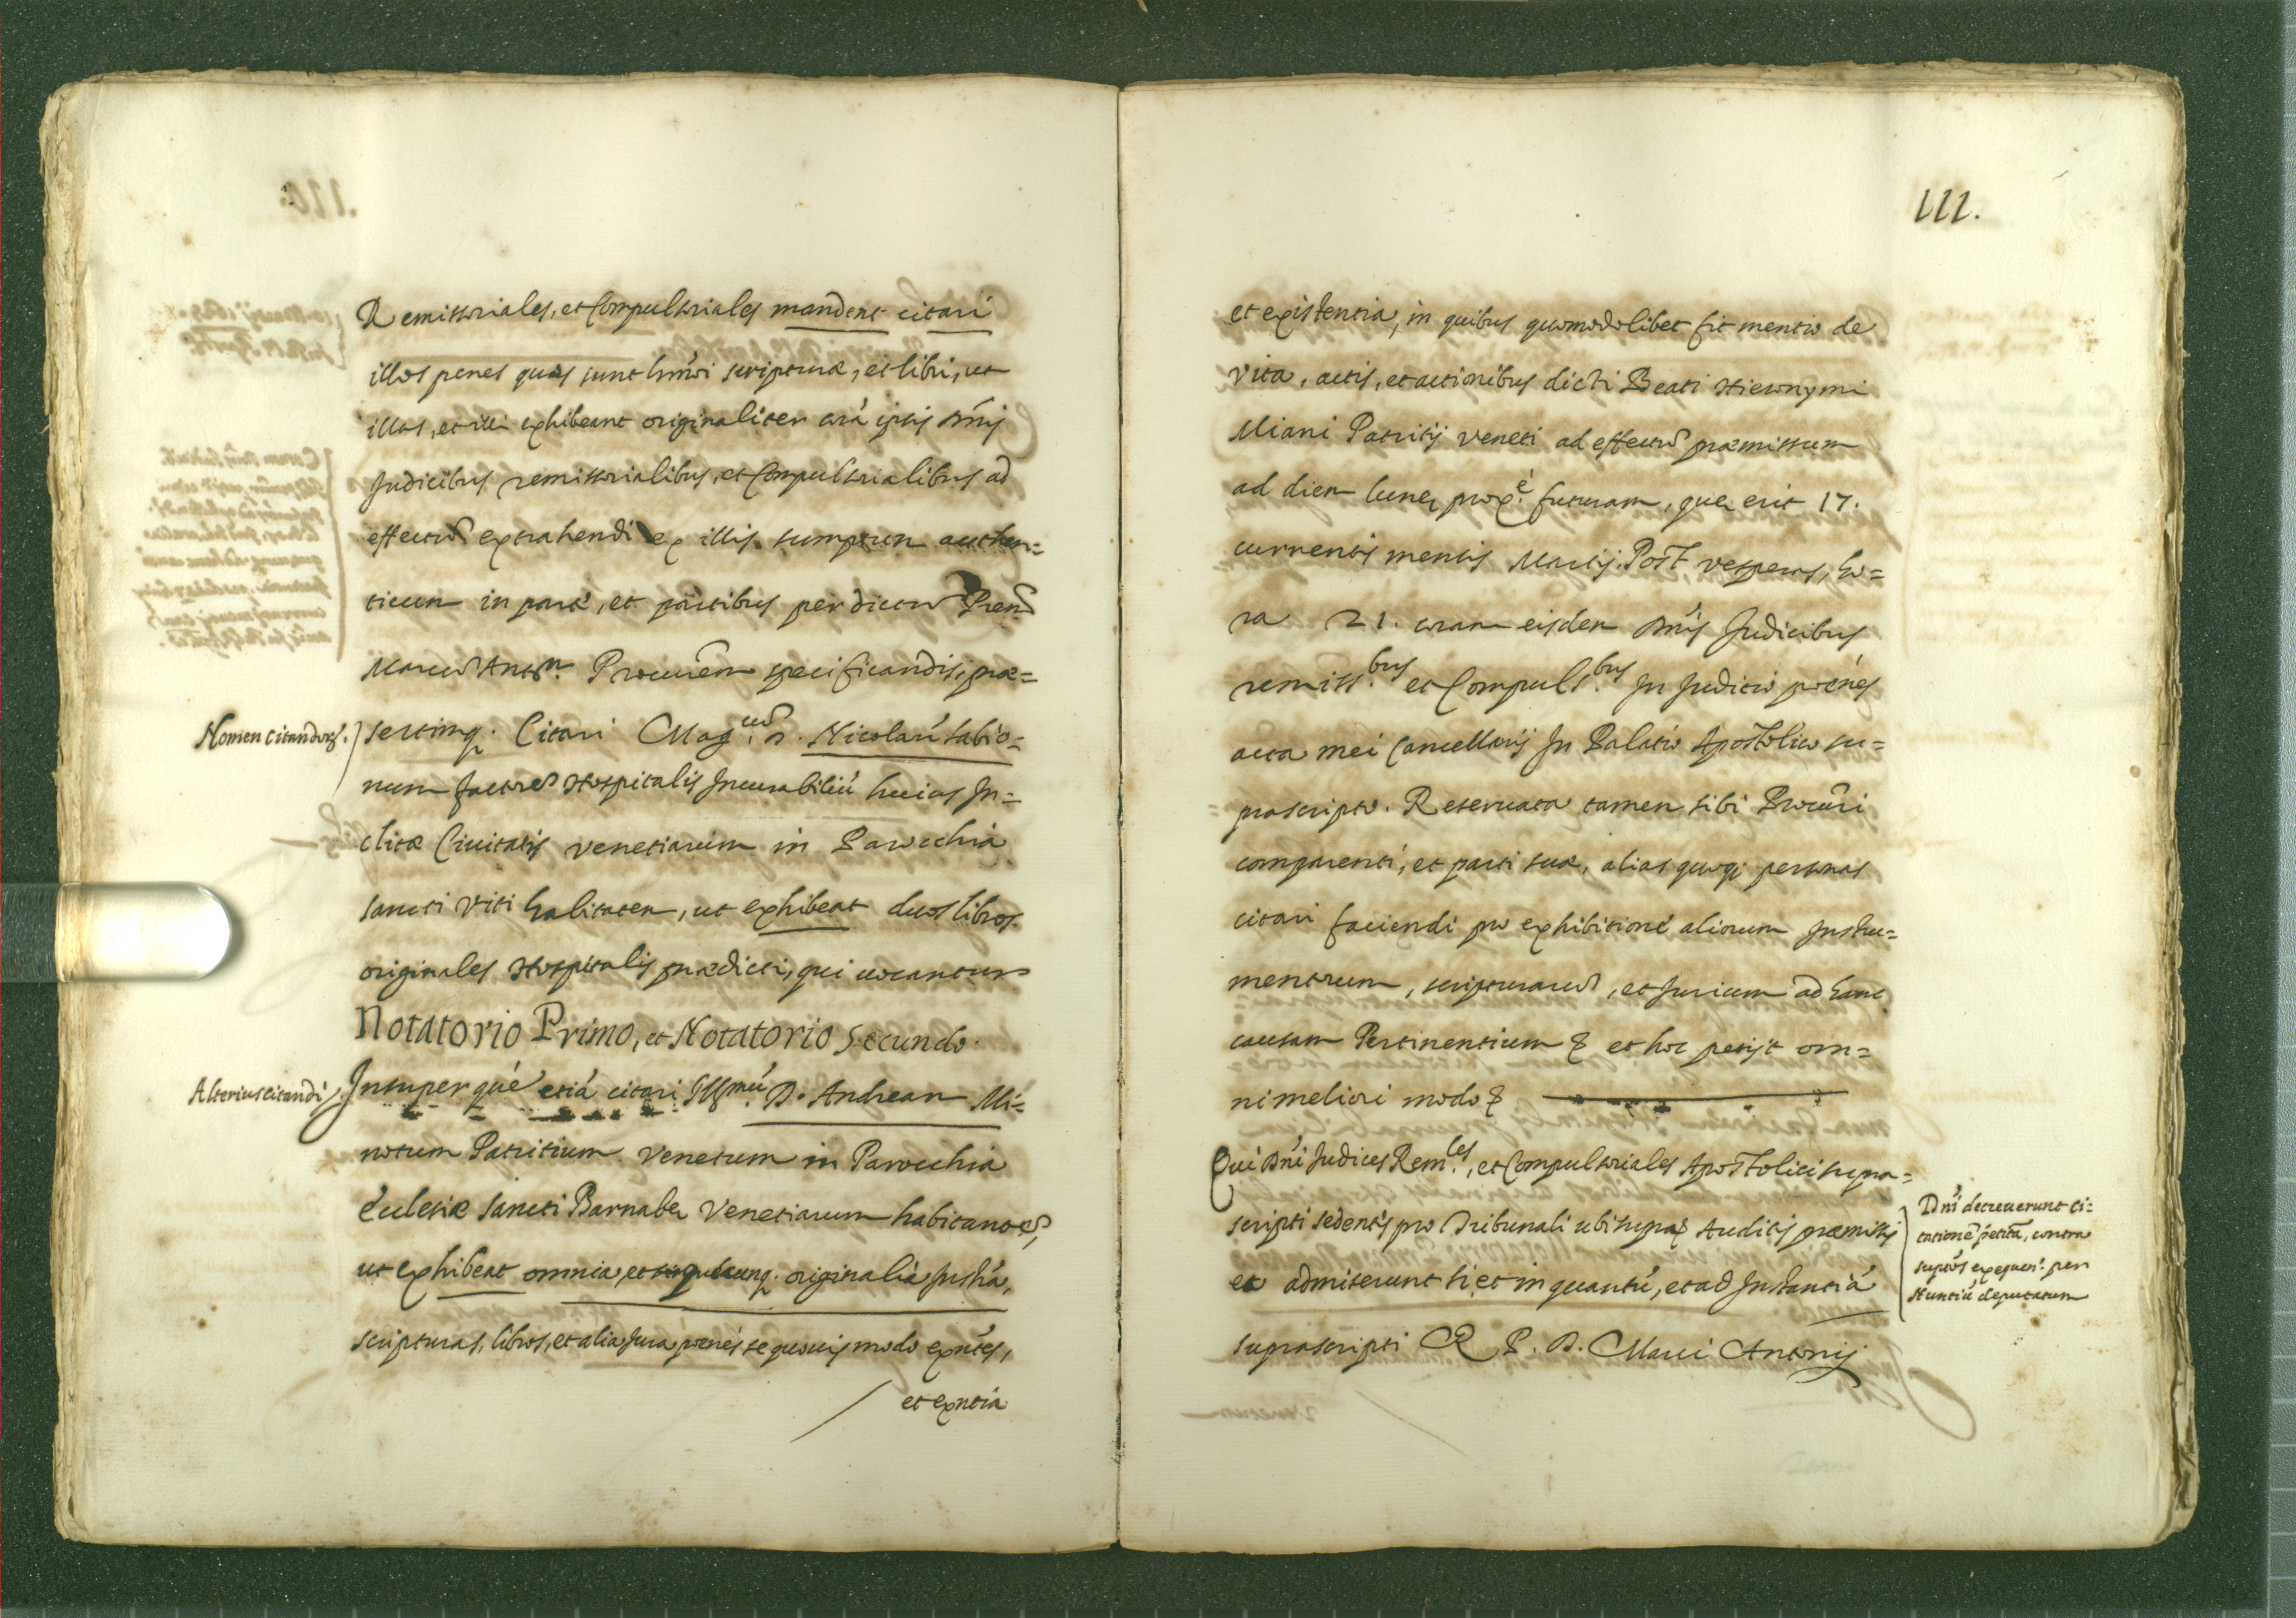 Remissoriales, et Compulsoriales mandent citari
illos penes quos sunt hmõi scripturæ, et libri, ut
illas, et illi exhibeant originaliter corá ipsis Dñis
Judicibus remissorialibus, et Compulsorialibus ad
effectũ extrahendi ex illis sumptum authen=
ticum in parte, et partibus per dictum
Marcũ Anto.m Procurẽm specificandis, præ=
Nomen citandorũ.
sertimq. Citari Mag.cũ D. Nicolaú Sabio=
num factorẽ Hospitalis Incurabiliú huius In=
clitæ Ciuitatis Venetiarum in Parochia
Sancti Viti habitatem, ut exhibeat duos libros
originales Hospitalis prædicti, qui uocantur
Notatorio Primo, et Notatorio Secundo.
Alterius citandi
Insuper qué etiá citari Ill.mú D. Andream Mi=
notum Patritium Venetum in Parochia
Ecclesiæ Sancti Barnabæ Venetiarum habitantẽ,
ut exhibeat omnia, et quæcunq. originalia Instŕa,
scripturas, libros, et alia Jura penés se quouis modo exñtes,
et exñtia
111.
et existentia, in quibus quomodolibet fit mentio de
vita, actis, et actionibus dicti Beati Hieronymi
Miani Patritij Veneti ad effectũ præmissum
ad diem lunę prox.é futuram, quę erit 17.
currentis mensis Martij. Post vesperas, ho=
ra 21. coram eisdem Dñis Judicibus
remiss.bus et Compuls.bus In Juditio penés
acta mei Cancellarij In Palatio Apostolico su=
prascripto. Reseruata tamen sibi Procuri
comparenti, et parti suæ, alias quoq; personas
citari faciendi pro exhibitione aliorum Instru=
mentorum, scripturarũ, et Jurium ad hanc
causam Pertinentium & et hoc petijt om=
ni meliori modo &
Qui Dñi Judices Rem.les, et Compulsoriales Apostolici supra=
scripti sedentes pro Tribunali ubi supra & Auditis præmissis
ea admiserunt si, et in quantú, et ad Instantiá
suprascripti R. P. D. Marci Antonij
Dñi decreuerunt ci=
tationẽ petitã, contra
suptos exequen. per
Nuntiú deputatum